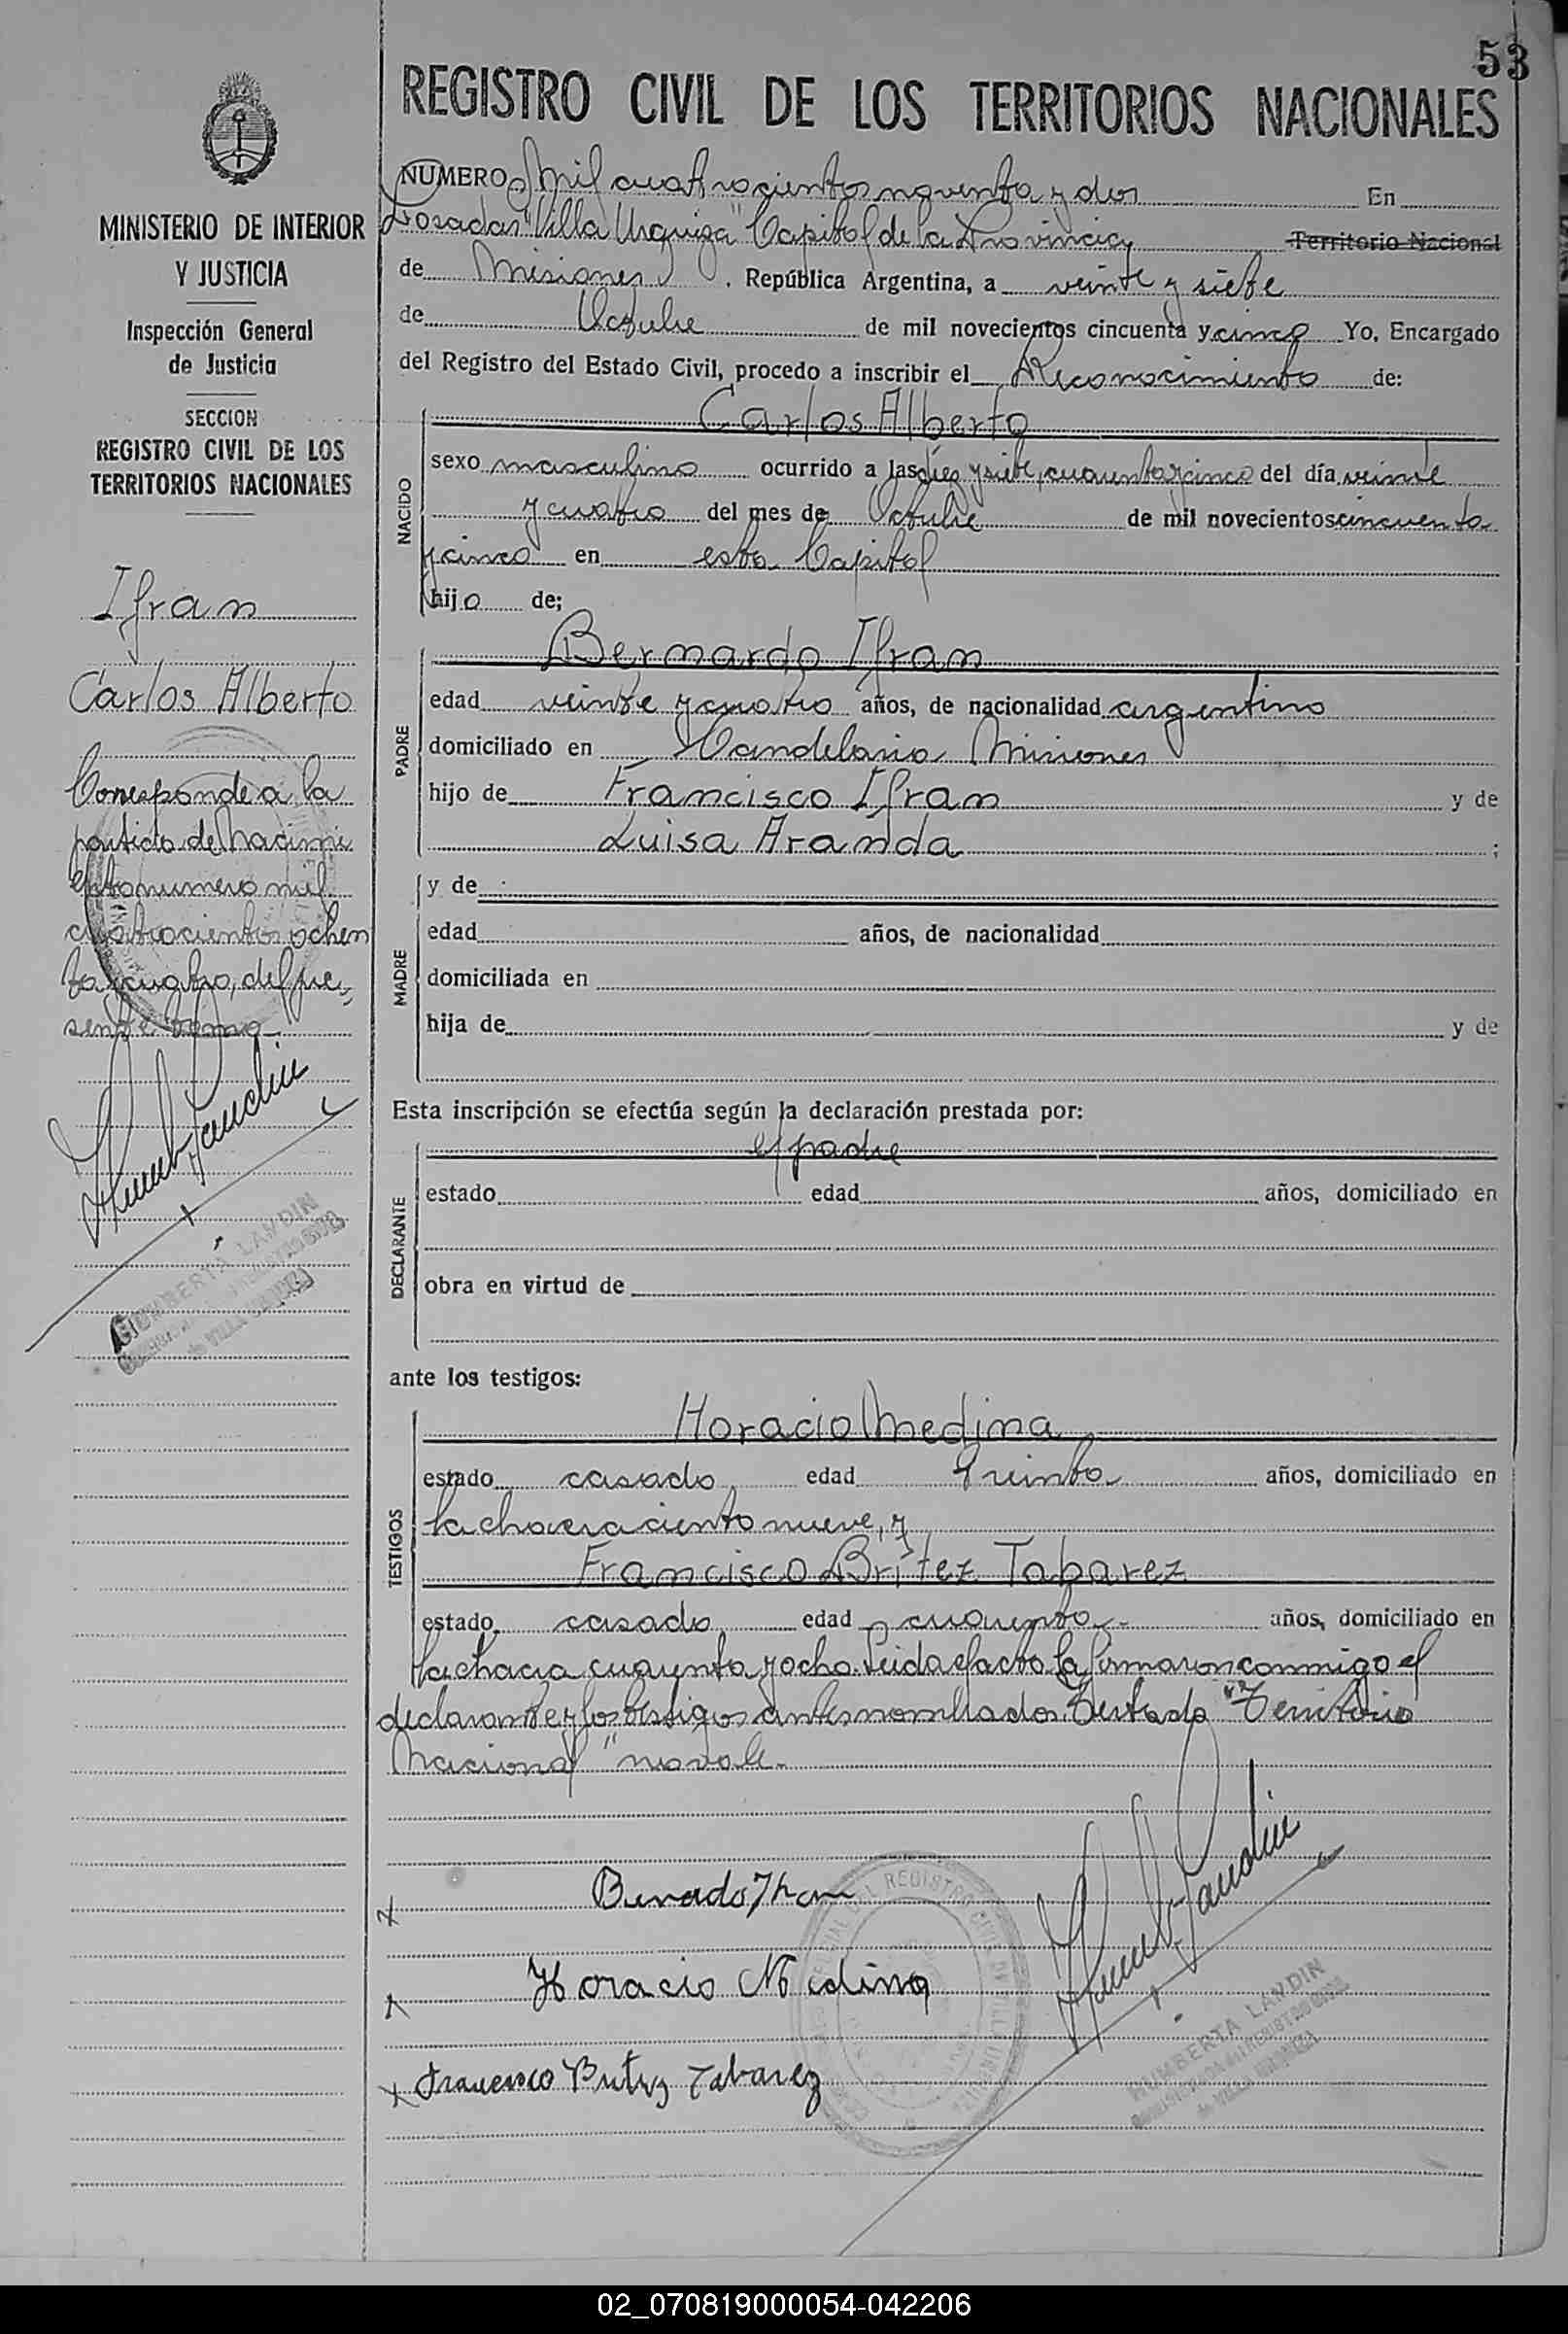 53
REGISTRO CIVIL DE LOS TERRITORIOS NACIONALES
MINISTERIO DE INTERIOR
Y JUSTICIA
Inspección General
de Justicia
SECCION
REGISTRO CIVIL DE LOS
TERRITORIOS NACIONALES
Ifran
Carlos Alberto
Corresponde a la
partida de Nacimi
ento numero mil
cuatrocientos ochen
ta y cuatro, del pre-
sente tomo
HUMBERTA LANDIN
de VILLA URQUIZA
NUMERO Mil cuatrocientos noventa y dos En
Posadas "Villa Urquiza" Capital de la Provincia Territorio Nacional
de Misiones . República Argentina, a veinte y siete
de Octubre de mil novecientos cincuenta y cinco Yo, Encargado
del Registro del Estado Civil, procedo a inscribir el Reconocimiento de:
NACIDO
Carlos Alberto
sexo masculino ocurrido a las diez y siete, cuarenta y cinco del día veinte
y cuatro del mes de Octubre de mil novecientos cincuenta
y cinco en esta Capital
hijo de;
PADRE
Bernardo Ifran
edad veinte y cuatro años, de nacionalidad argentino
domiciliado en Candelaria Misiones
hijo de Francisco Ifran y de
Luisa Aranda ;
MADRE
y de
edad años, de nacionalidad
domiciliada en
hija de y de
Esta inscripción se efectúa según la declaración prestada por:
DECLARANTE
el padre
estado edad años, domiciliado en
obra en virtud de
ante los testigos:
TESTIGOS
Horacio Medina
estado casado edad treinta años, domiciliado en
la chacra ciento nueve, y
Francisco Britez Tabarez
estado casado edad cuarenta años, domiciliado en
la chacra cuarenta y ocho. Leida el acta la firmaron conmigo el
declarante y los testigos antes nombrados. Testado "Territorio
Nacional" no vale.
Horacio Medina
Francisco Britez Tabarez
HUMBERTA LANDIN
de VILLA URQUIZA
02_070819000054-042206